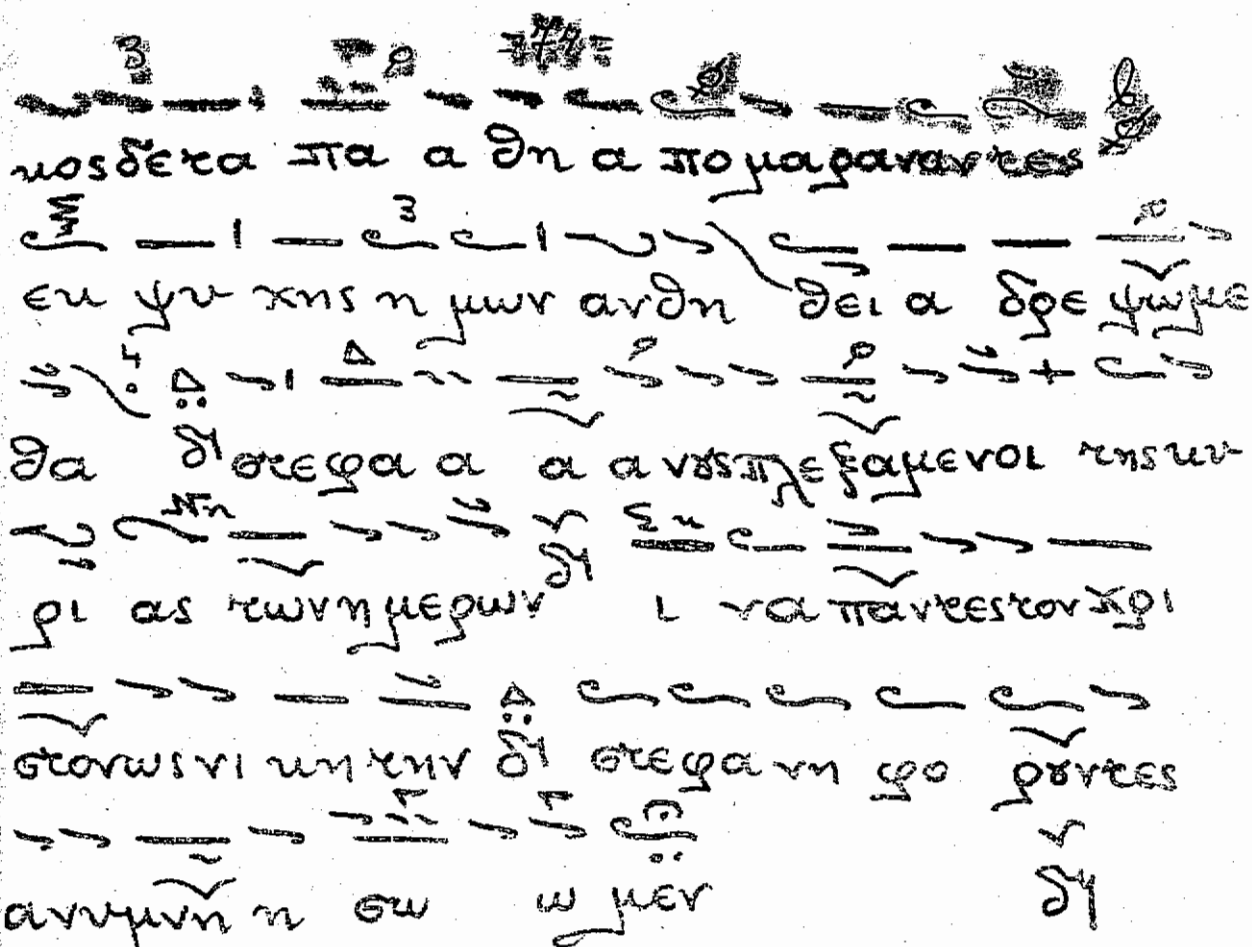 κος δε τα πα α θη α πο μαραναντες
εκ ψυ χης η μων ανθη θει α δρε ψωμε
θα δι στεφα α α α νους πλεξαμενοι της κυ
ρι ας των ημερων δι ι να παντες τον Χρι
στον ως νι κη την δι στεφα νη φο ρουντες
ανυμνη η σω ω μεν δι